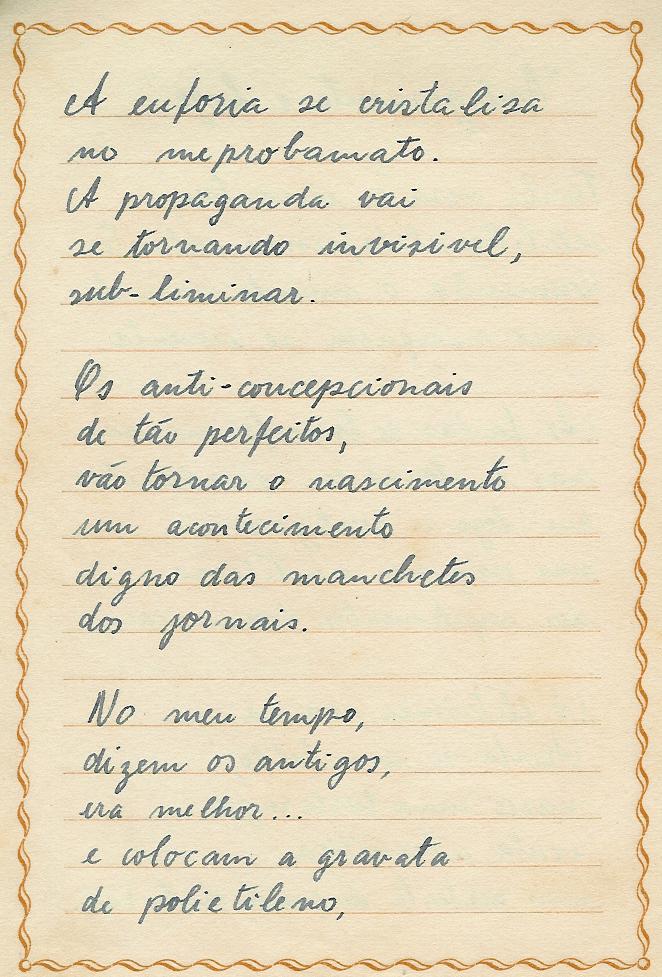 A euforia se cristaliza
no meprobamato.
A propaganda vai
se tornando invisivel,
sub-liminar.

Os anti-concepcionais
de tão perfeitos,
vão tornar o nascimento
um acontecimento
digno das manchetes
dos jornais.

No meu tempo,
dizem os antigos,
era melhor...
e colocam a gravata
de polietileno,